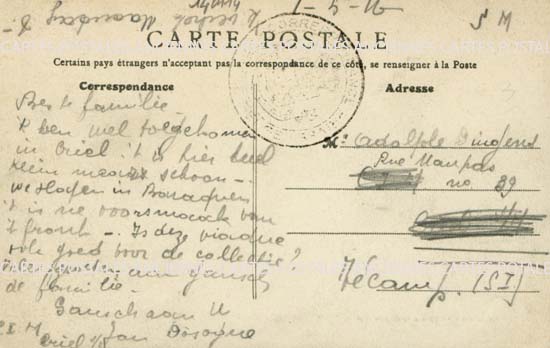 1-5-16
S M
CARTE POSTALE
Certains pays étrangers n'acceptant pas la correspondance de ce côté, se renseigner à la Poste
Correspondance
Adresse
Beste familie
'k ben wel toegekomen
in Criel 't is hier heel
klein maar schoon -.
we slapen in Baraquen
't is ne voorsmaak van
't front -. Is deze
ook goed voor de collectie?
aan gansch
de familie -
Gansch aan U
Jan
Criel
Mr Adolphe Dingens
Rue Maupas
no 39
Fécamp. (S I)